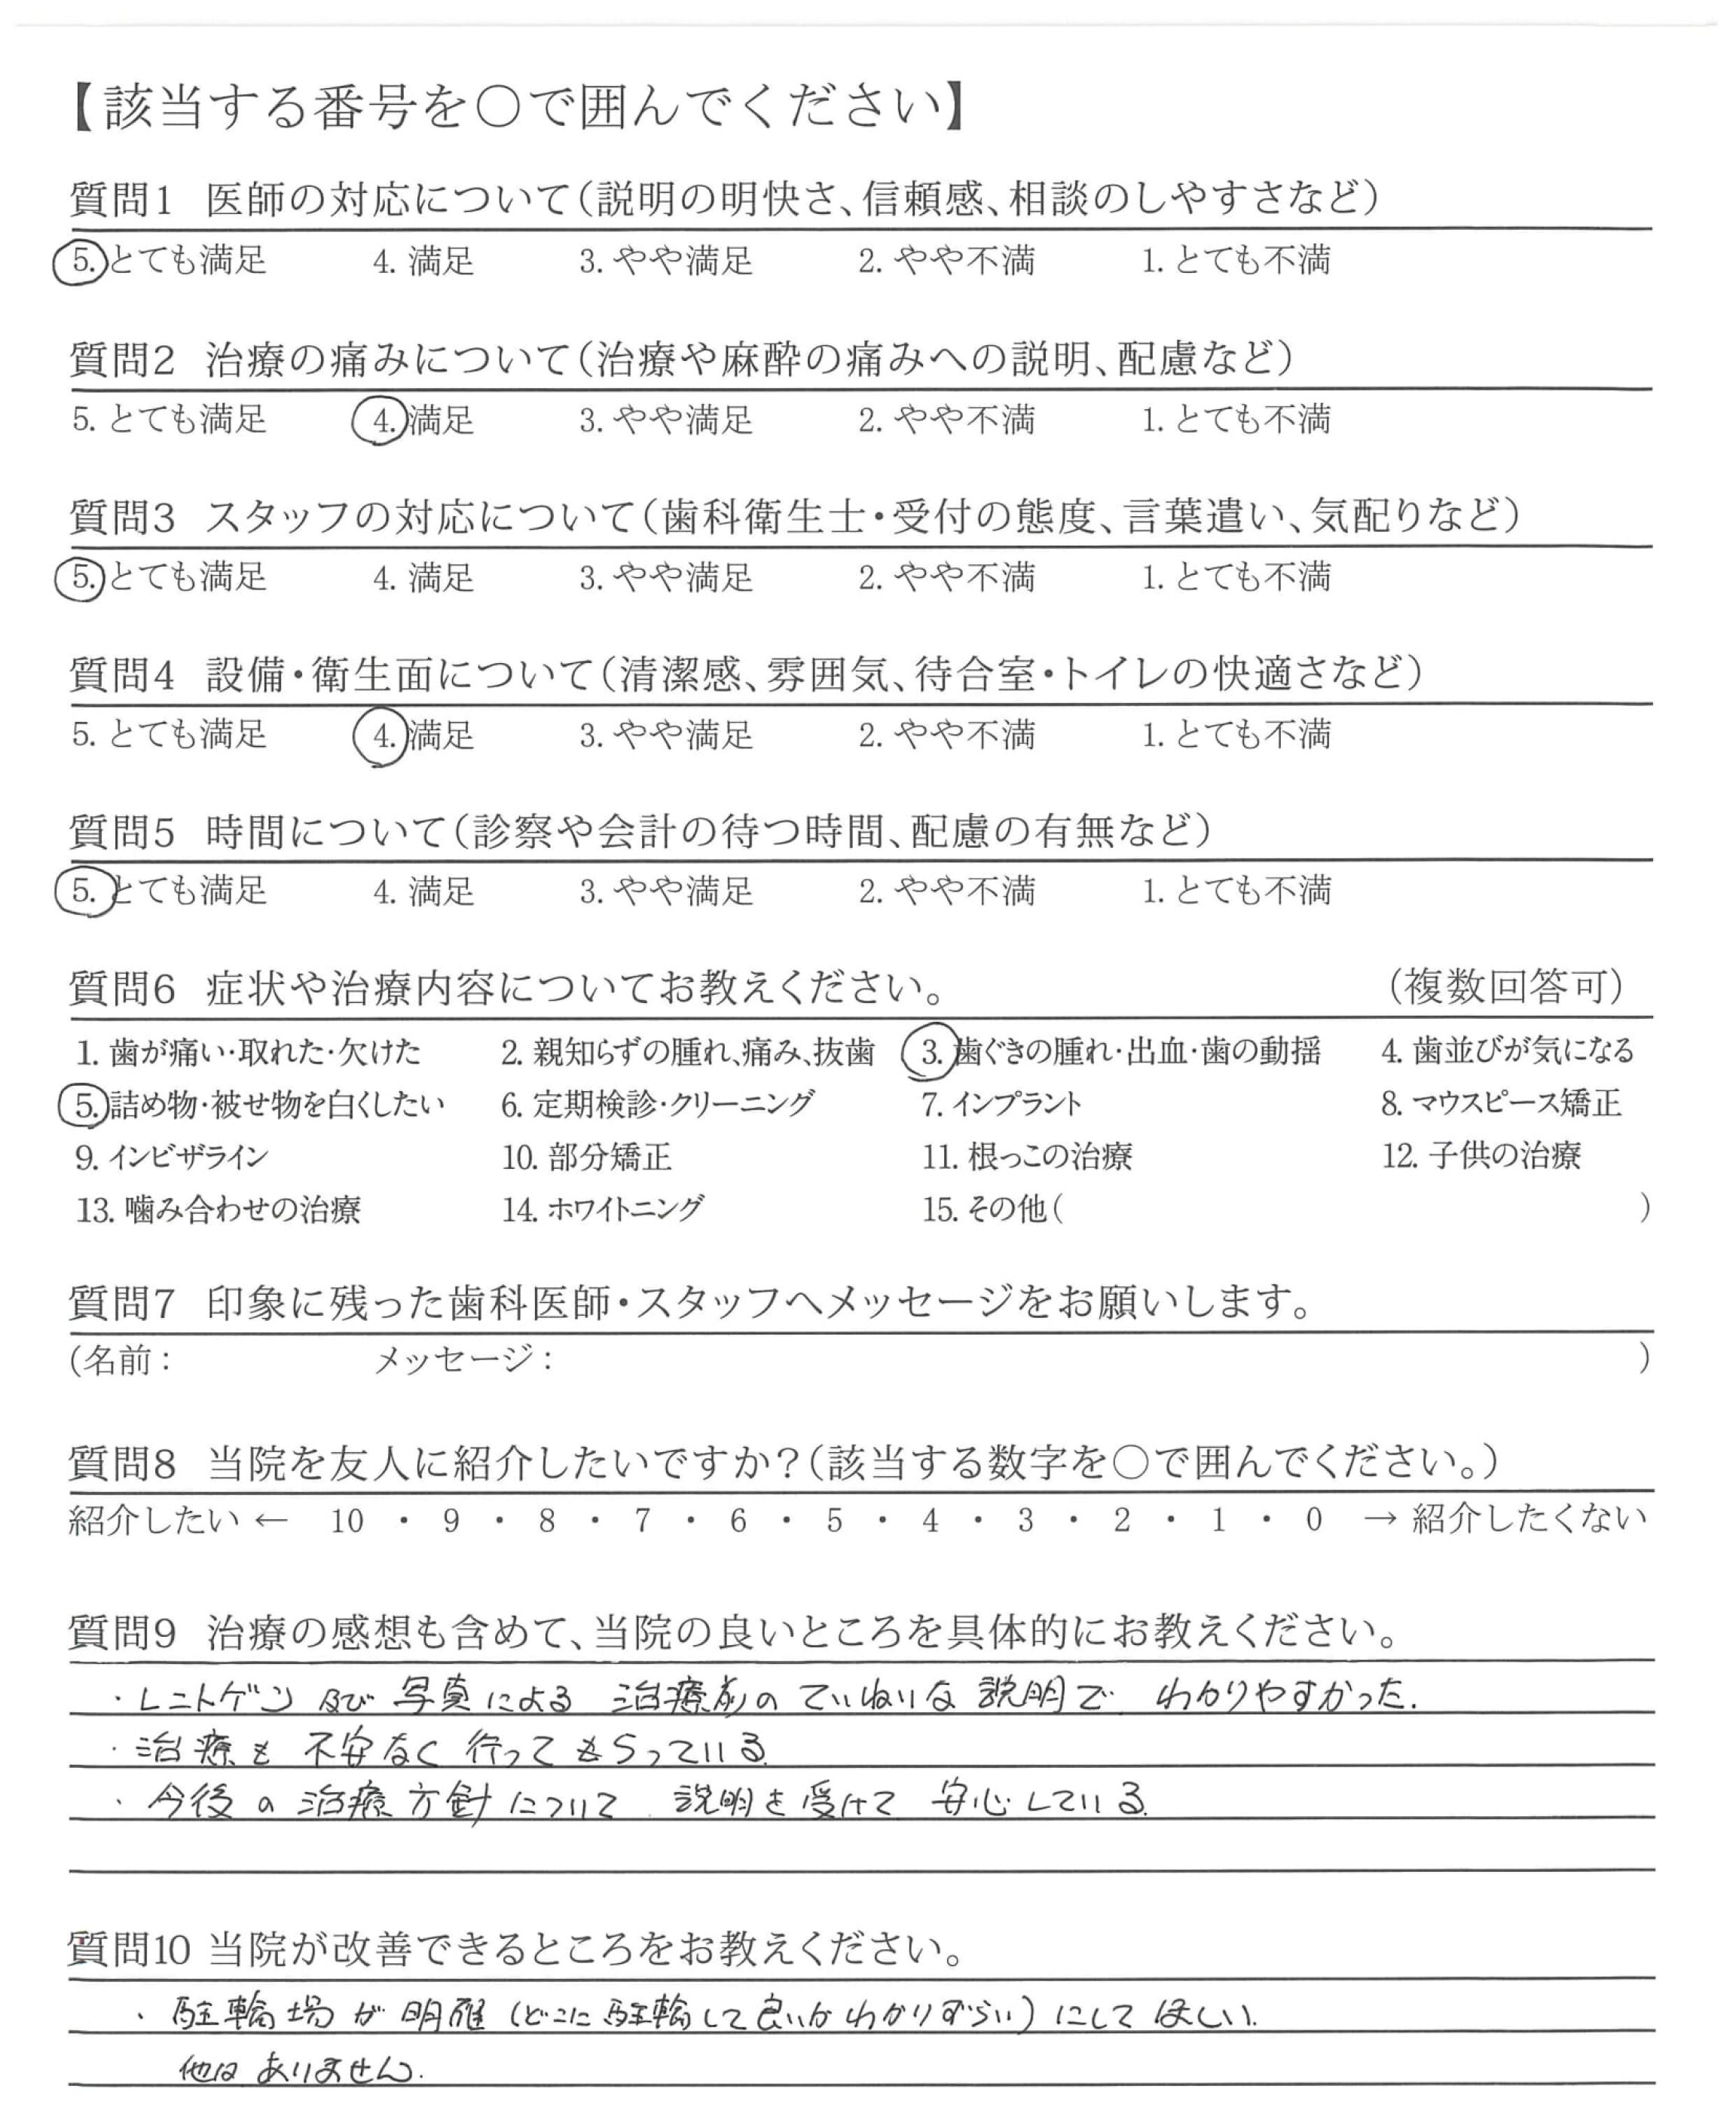 【該当する番号を○で囲んでください】
質問1 医師の対応について(説明の明快さ、信頼感、相談のしやすさなど)
5. とても満足 4. 満足 3. やや満足 2. やや不満 1. とても不満
質問2 治療の痛みについて(治療や麻酔の痛みへの説明、配慮など)
5. とても満足 4. 満足 3. やや満足 2. やや不満 1. とても不満
質問3 スタッフの対応について(歯科衛生士・受付の態度、言葉遣い、気配りなど)
5. とても満足 4. 満足 3. やや満足 2. やや不満 1. とても不満
質問4 設備・衛生面について(清潔感、雰囲気、待合室・トイレの快適さなど)
5. とても満足 4. 満足 3. やや満足 2. やや不満 1. とても不満
質問5 時間について(診察や会計の待つ時間、配慮の有無など)
5. とても満足 4. 満足 3. やや満足 2. やや不満 1. とても不満
質問6 症状や治療内容についてお教えください。 (複数回答可)
1. 歯が痛い・取れた・欠けた 2. 親知らずの腫れ、痛み、抜歯 3. 歯ぐきの腫れ・出血・歯の動揺 4. 歯並びが気になる
5. 詰め物・被せ物を白くしたい 6. 定期検診・クリーニング 7. インプラント 8. マウスピース矯正
9. インビザライン 10. 部分矯正 11. 根っこの治療 12. 子供の治療
13. 噛み合わせの治療 14. ホワイトニング 15. その他( )
質問7 印象に残った歯科医師・スタッフへメッセージをお願いします。
(名前: メッセージ: )
質問8 当院を友人に紹介したいですか?(該当する数字を○で囲んでください。)
紹介したい ← 10 ・ 9 ・ 8 ・ 7 ・ 6 ・ 5 ・ 4 ・ 3 ・ 2 ・ 1 ・ 0 → 紹介したくない
質問9 治療の感想も含めて、当院の良いところを具体的にお教えください。
・レントゲン及び写真による 治療前のていねいな説明で わかりやすかった.
・治療も 不安なく 行ってもらっている.
・今後の治療方針について 説明を受けて 安心している.
質問10 当院が改善できるところをお教えください。
・駐輪場が明確(どこに駐輪して良いかわかりずらい)にしてほしい.
他はありません.